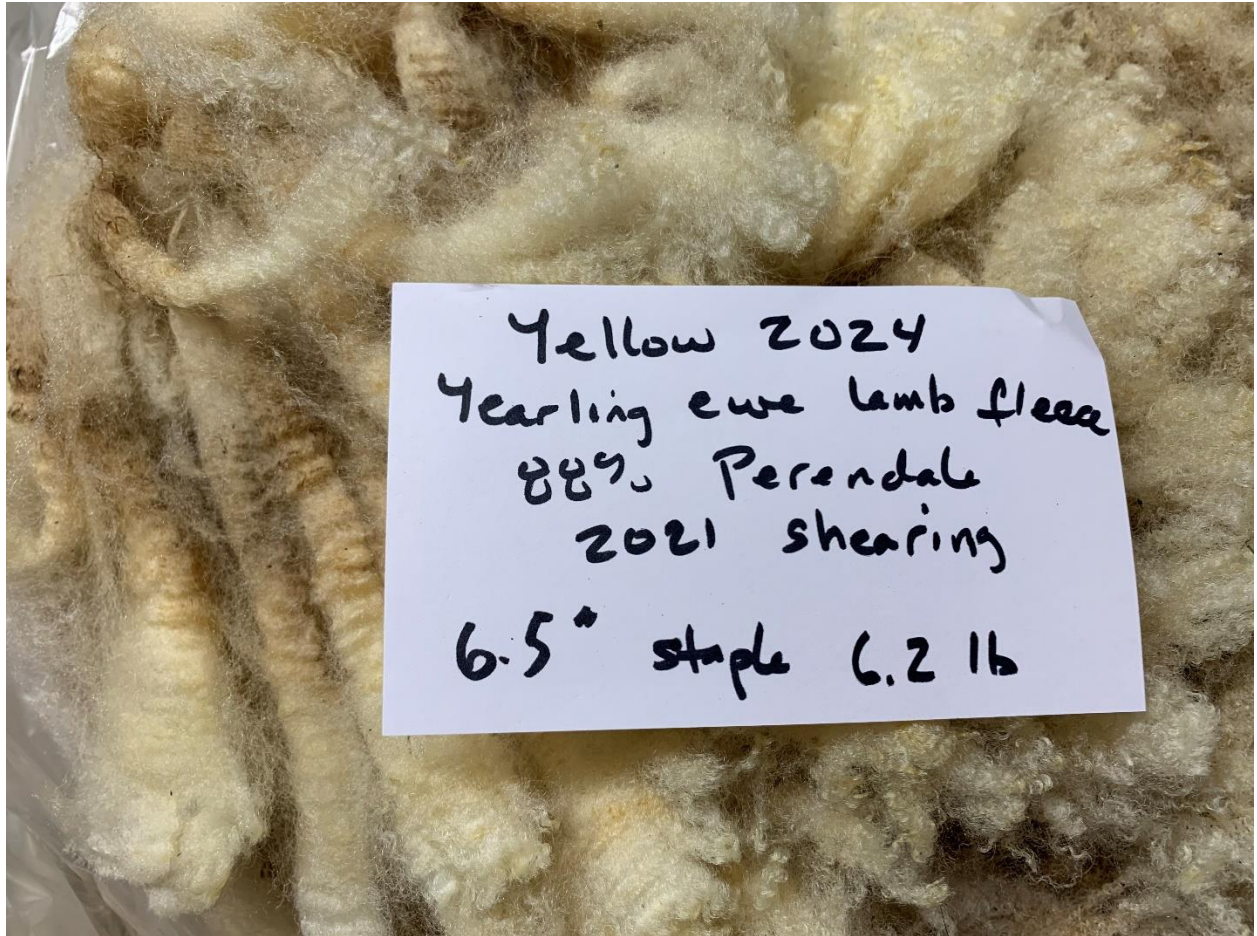 Yellow 2024
Yearling ewe lamb fleece
88% Perendale
2021 shearing
6.5" staple 6.2 lb